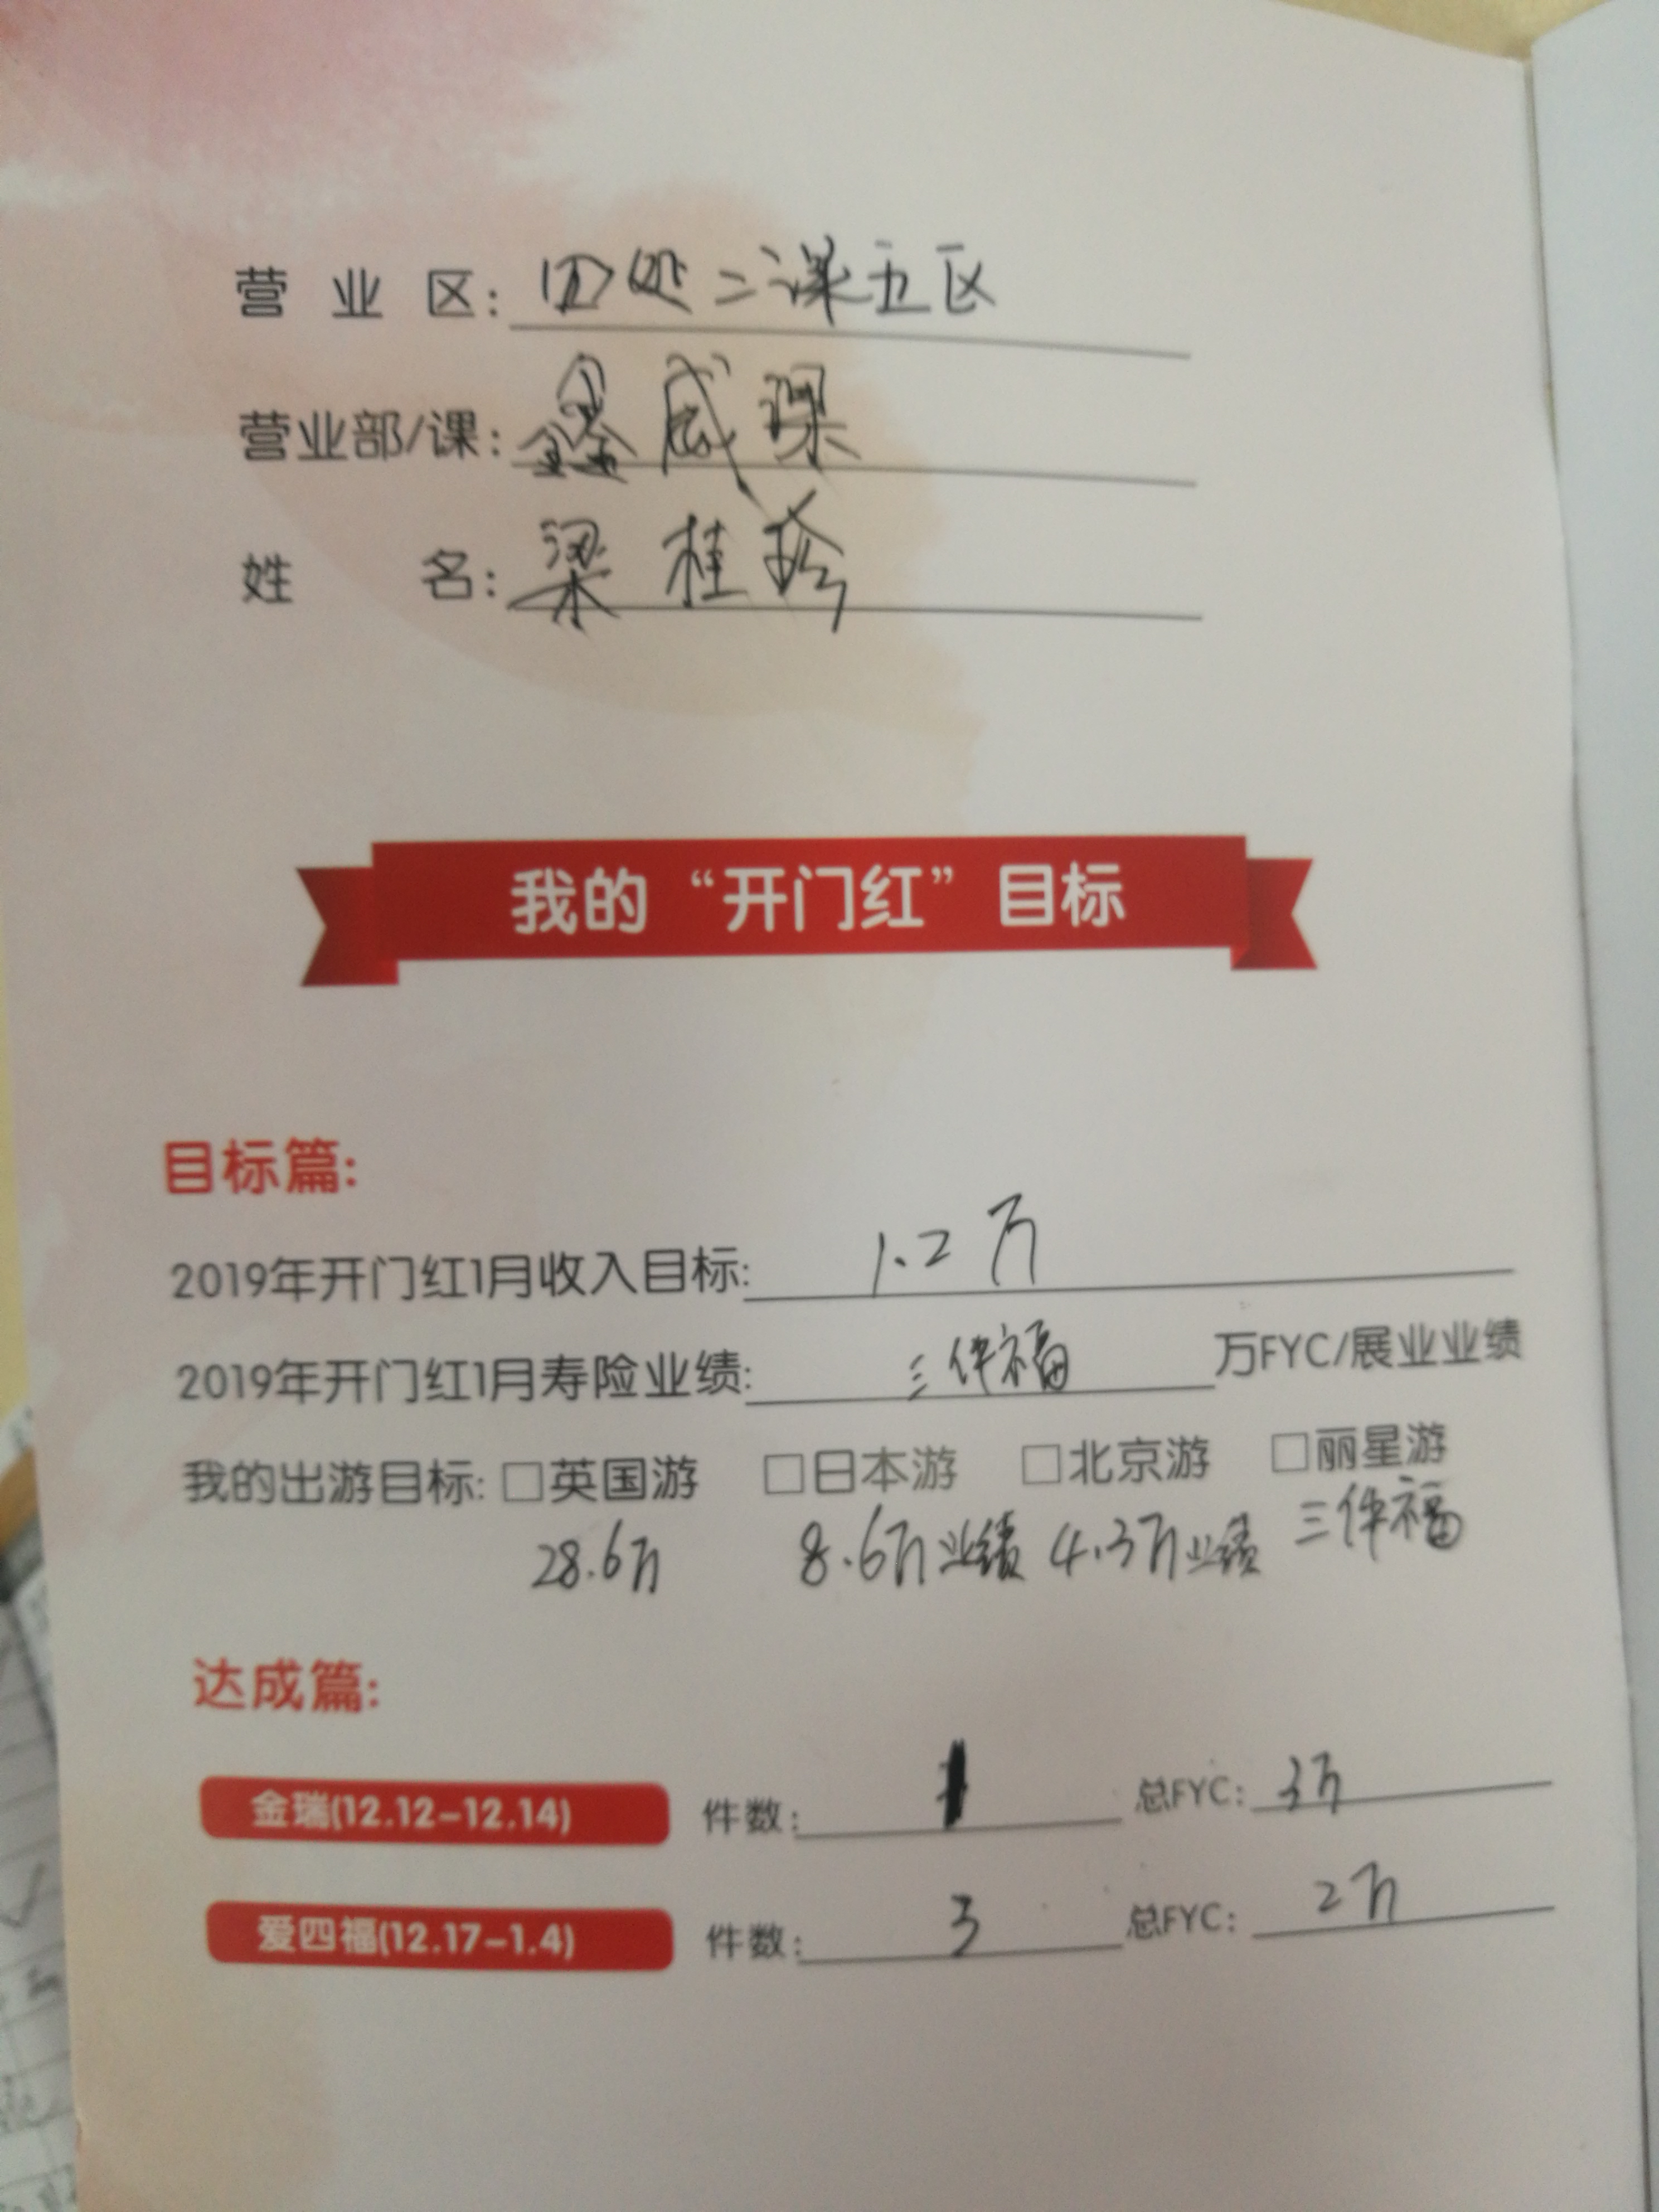 营业区: 四处二课五区
营业部/课: 鑫威课
姓名: 梁桂珍
我的“开门红”目标
目标篇:
2019年开门红1月收入目标: 1.2万
2019年开门红1月寿险业绩: 三件福 万FYC/展业业绩
我的出游目标: □英国游 □日本游 □北京游 □丽星游
28.6万 8.6万业绩 4.3万业绩 三件福
达成篇:
金瑞(12.12-12.14) 件数: 1 总FYC: 3万
爱四福(12.17-1.4) 件数: 3 总FYC: 2万